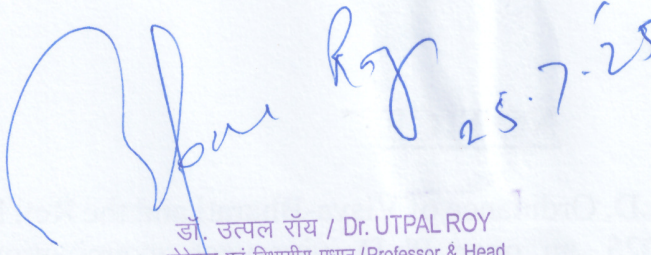 Utpal Roy 25.7.'25
डॉ. उत्पल रॉय / Dr. UTPAL ROY
प्रोफेसर एवं विभागीय प्रधान / Professor & Head